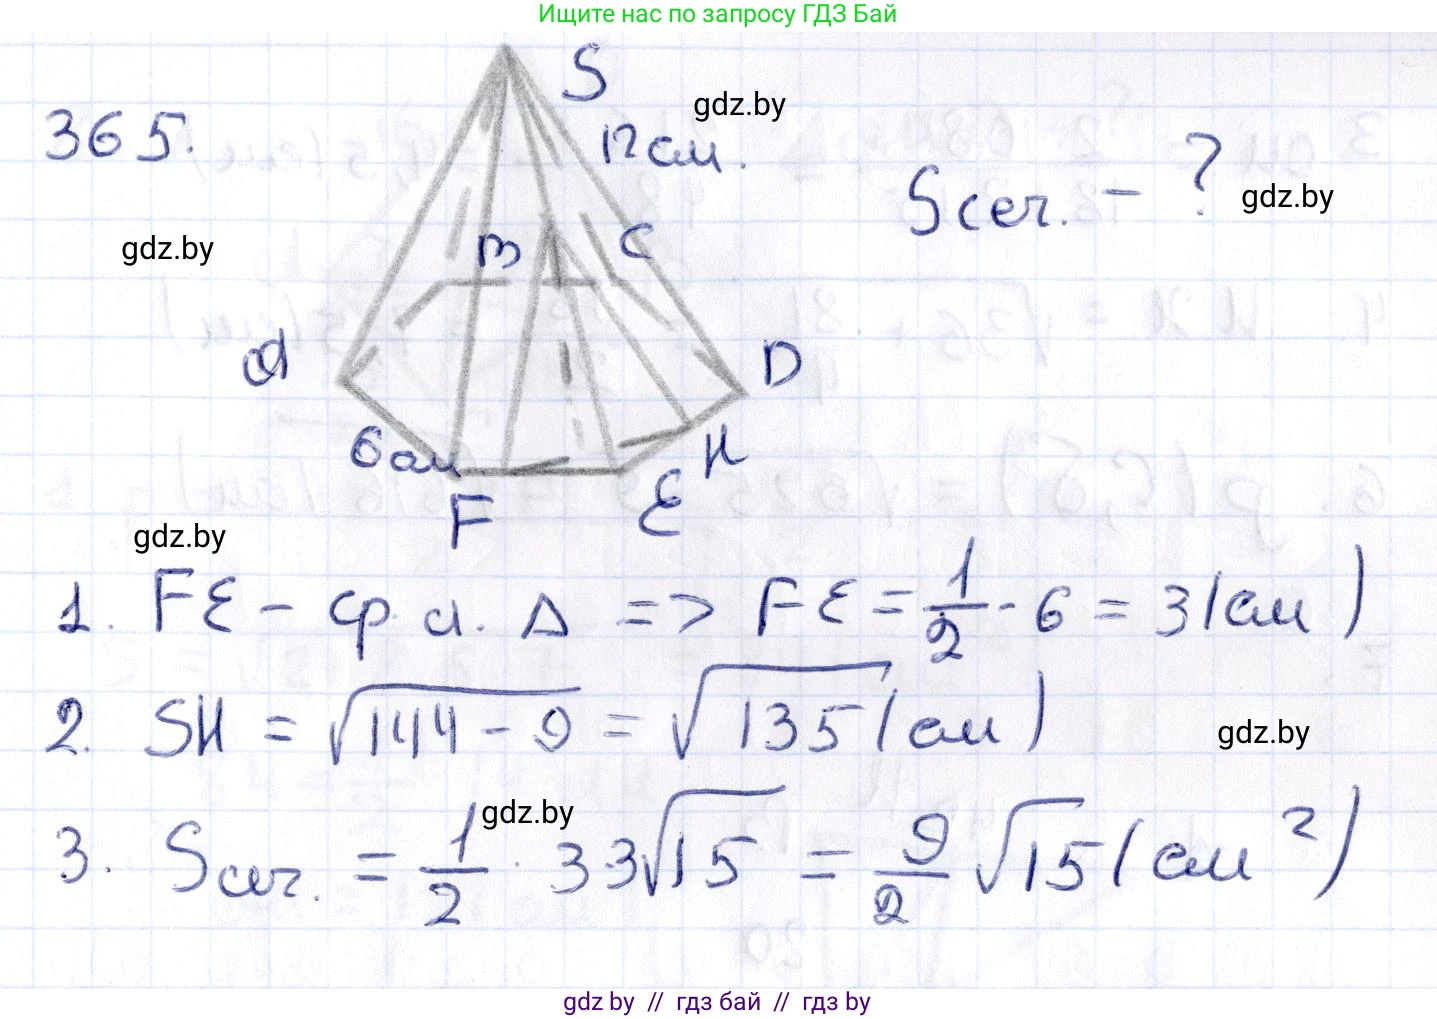 Ищите нас по запросу ГДЗ Бай
S
365.
gdz.by
12 см.
Sсеч. - ?
gdz.by
gdz.by
B
C
A
D
6 см
H
F
E
gdz.by
1. FE - ср. л. Δ => FE = 1/2 · 6 = 3 (см)
2. SH = √144 - 9 = √135 (см)
gdz.by
gdz.by
3. Sсеч. = 1/2 · 3 3√15 = 9/2 √15 (см²)
gdz by // гдз бай // гдз by